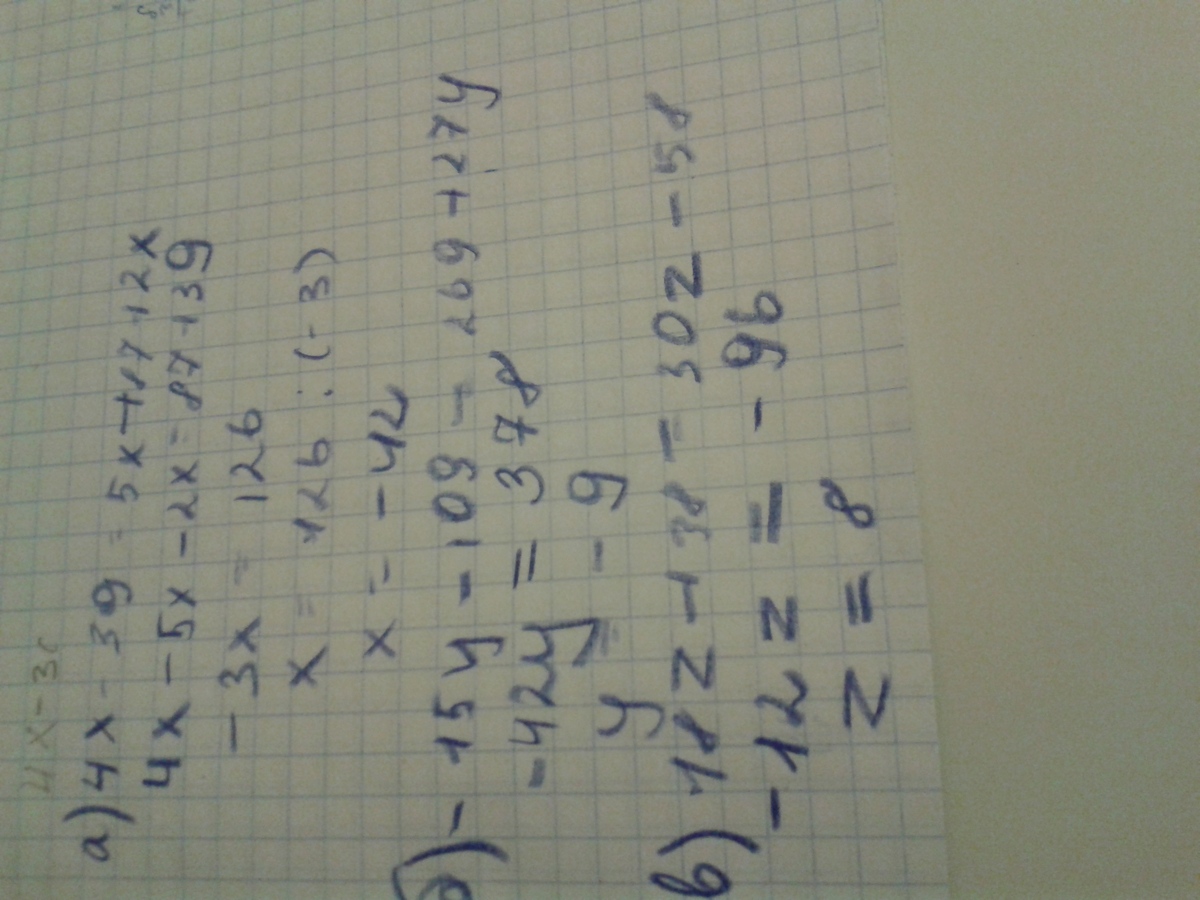 4x - 3
а) 4x - 39 = 5x + 87 + 2x
4x - 5x - 2x = 87 + 39
- 3x = 126
x = 126 : (- 3)
x = - 42
б) - 15y - 109 = 269 + 27y
- 42y = 378
y = - 9
в) 18z + 38 = 30z - 58
- 12z = - 96
z = 8